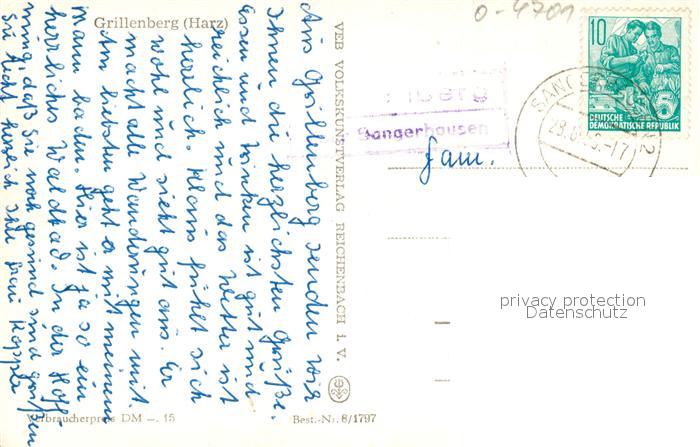 Grillenberg (Harz)
Aus Grillenberg senden wir
Ihnen die herzlichsten Grüße.
Essen und Trinken ist gut und
reichlich und das Wetter ist
herrlich. Klaus fühlt sich
wohl und sieht gut aus. Er
macht alle Wanderungen mit.
Am liebsten geht er mit meinem
Mann baden. Hier ist ja so ein
herrliches Waldbad. In der Hoff-
nung, daß Sie noch gesund sind grüßen
Sie recht herzlich Ihre Frau
Verbraucherpreis DM —. 15
VEB VOLKSKUNSTVERLAG REICHENBACH I. V.
Best.-Nr. 8/1797
0-4701
berg
Sangerhausen
10
5
DEUTSCHE
DEMOKRATISCHE REPUBLIK
Fam.
privacy protection
Datenschutz